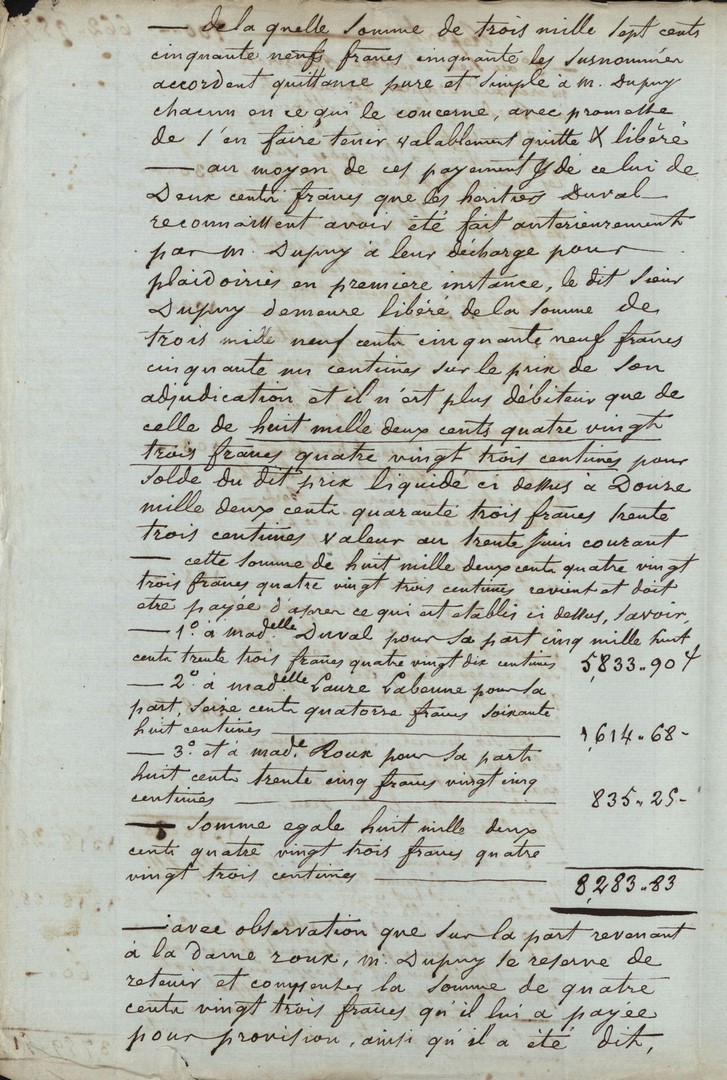 — de la quelle somme de trois mille sept cents
cinquante neufs francs cinquante les susnommés
accordent quittance pure et simple à m. Dupuy
chacun en ce qui le concerne, avec promesse
de l'en faire tenir valablement quitte & libéré
— au moyen de ces payements & de celui de
Deux cents francs que les heritiers Duval
reconnaissent avoir été fait anterieurement
par m. Dupuy à leur décharge pour
plaidoiries en premiere instance, le dit sieur
Dupuy demeure libéré de la somme de
trois mille neuf cents cinquante neuf francs
cinquante un centimes sur le prix de son
adjudication et il n'est plus débiteur que de
celle de huit mille deux cents quatre vingt
trois francs quatre vingt trois centimes pour
solde du dit prix liquidé ci dessus a Douze
mille deux cents quarante trois francs trente
trois centimes valeur au trente Juin courant
— cette somme de huit mille deux cents quatre vingt
trois francs quatre vingt trois centimes revient et doit
etre payée d'apres ce qui est etabli ci dessus, savoir,
— 1.° à mad.elle Duval pour sa part cinq mille huit
cents trente trois francs quatre vingt dix centimes 5,833..90
— 2.° à mad.elle Laure Labenne pour sa
part, seize cents quatorze francs soixante
huit centimes — 1,614..68-
— 3.° et à mad.e Roux pour sa part
huit cents trente cinq francs vingt cinq
centimes — 835..25-
— Somme egale huit mille deux
cents quatre vingt trois francs quatre
vingt trois centimes — 8,283..83
— avec observation que sur la part revenant
à la dame roux, m. Dupuy se reserve de
retenir et compenser la somme de quatre
cents vingt trois francs qu'il lui a payée
pour provision, ainsi qu'il a été dit,